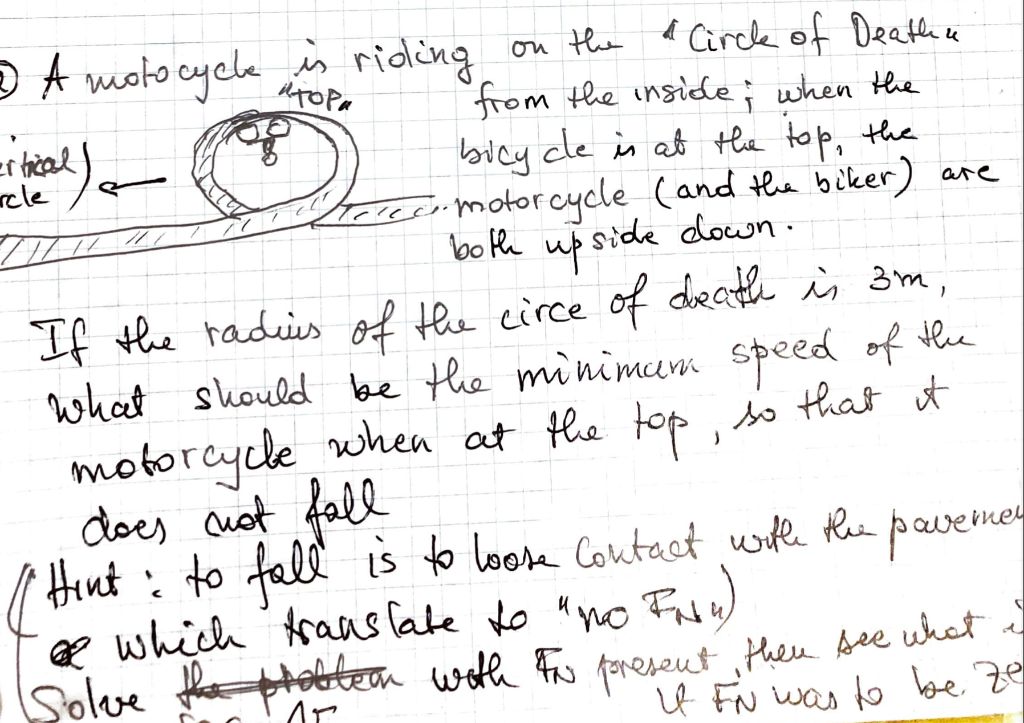 2) A motocycle is riding on the "Circle of Death"
"TOP"
from the inside; when the
bicycle is at the top, the
motorcycle (and the biker) are
both upside down.
If the radius of the circe of death is 3m,
what should be the minimum speed of the
motorcycle when at the top, so that it
does not fall
(Hint: to fall is to loose contact with the
which translate to "no FN")
Solve the problem with FN present, then see what
if FN was to be